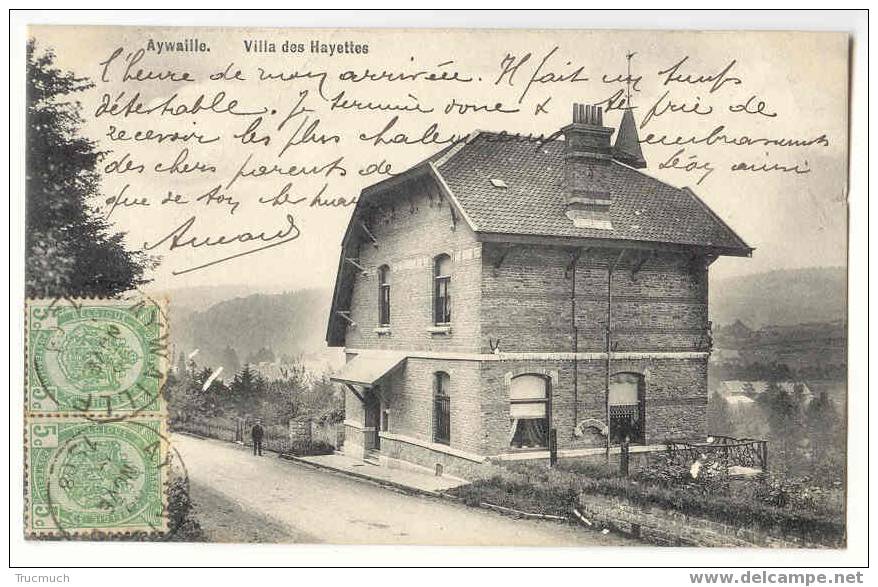 Aywaille. Villa des Hayettes
l'heure de mon arrivée. Il fait un temps
détestable. Je termine donc & te prie de
recevoir les plus chaleureux embrassements
des chers parents de Léon ainsi
que de ton cher
Amand
BELGIQUE
5c 5c
AYWAILLE
BELGIQUE
5c 5c
AYWAILLE
Trucmuch
www.delcampe.net